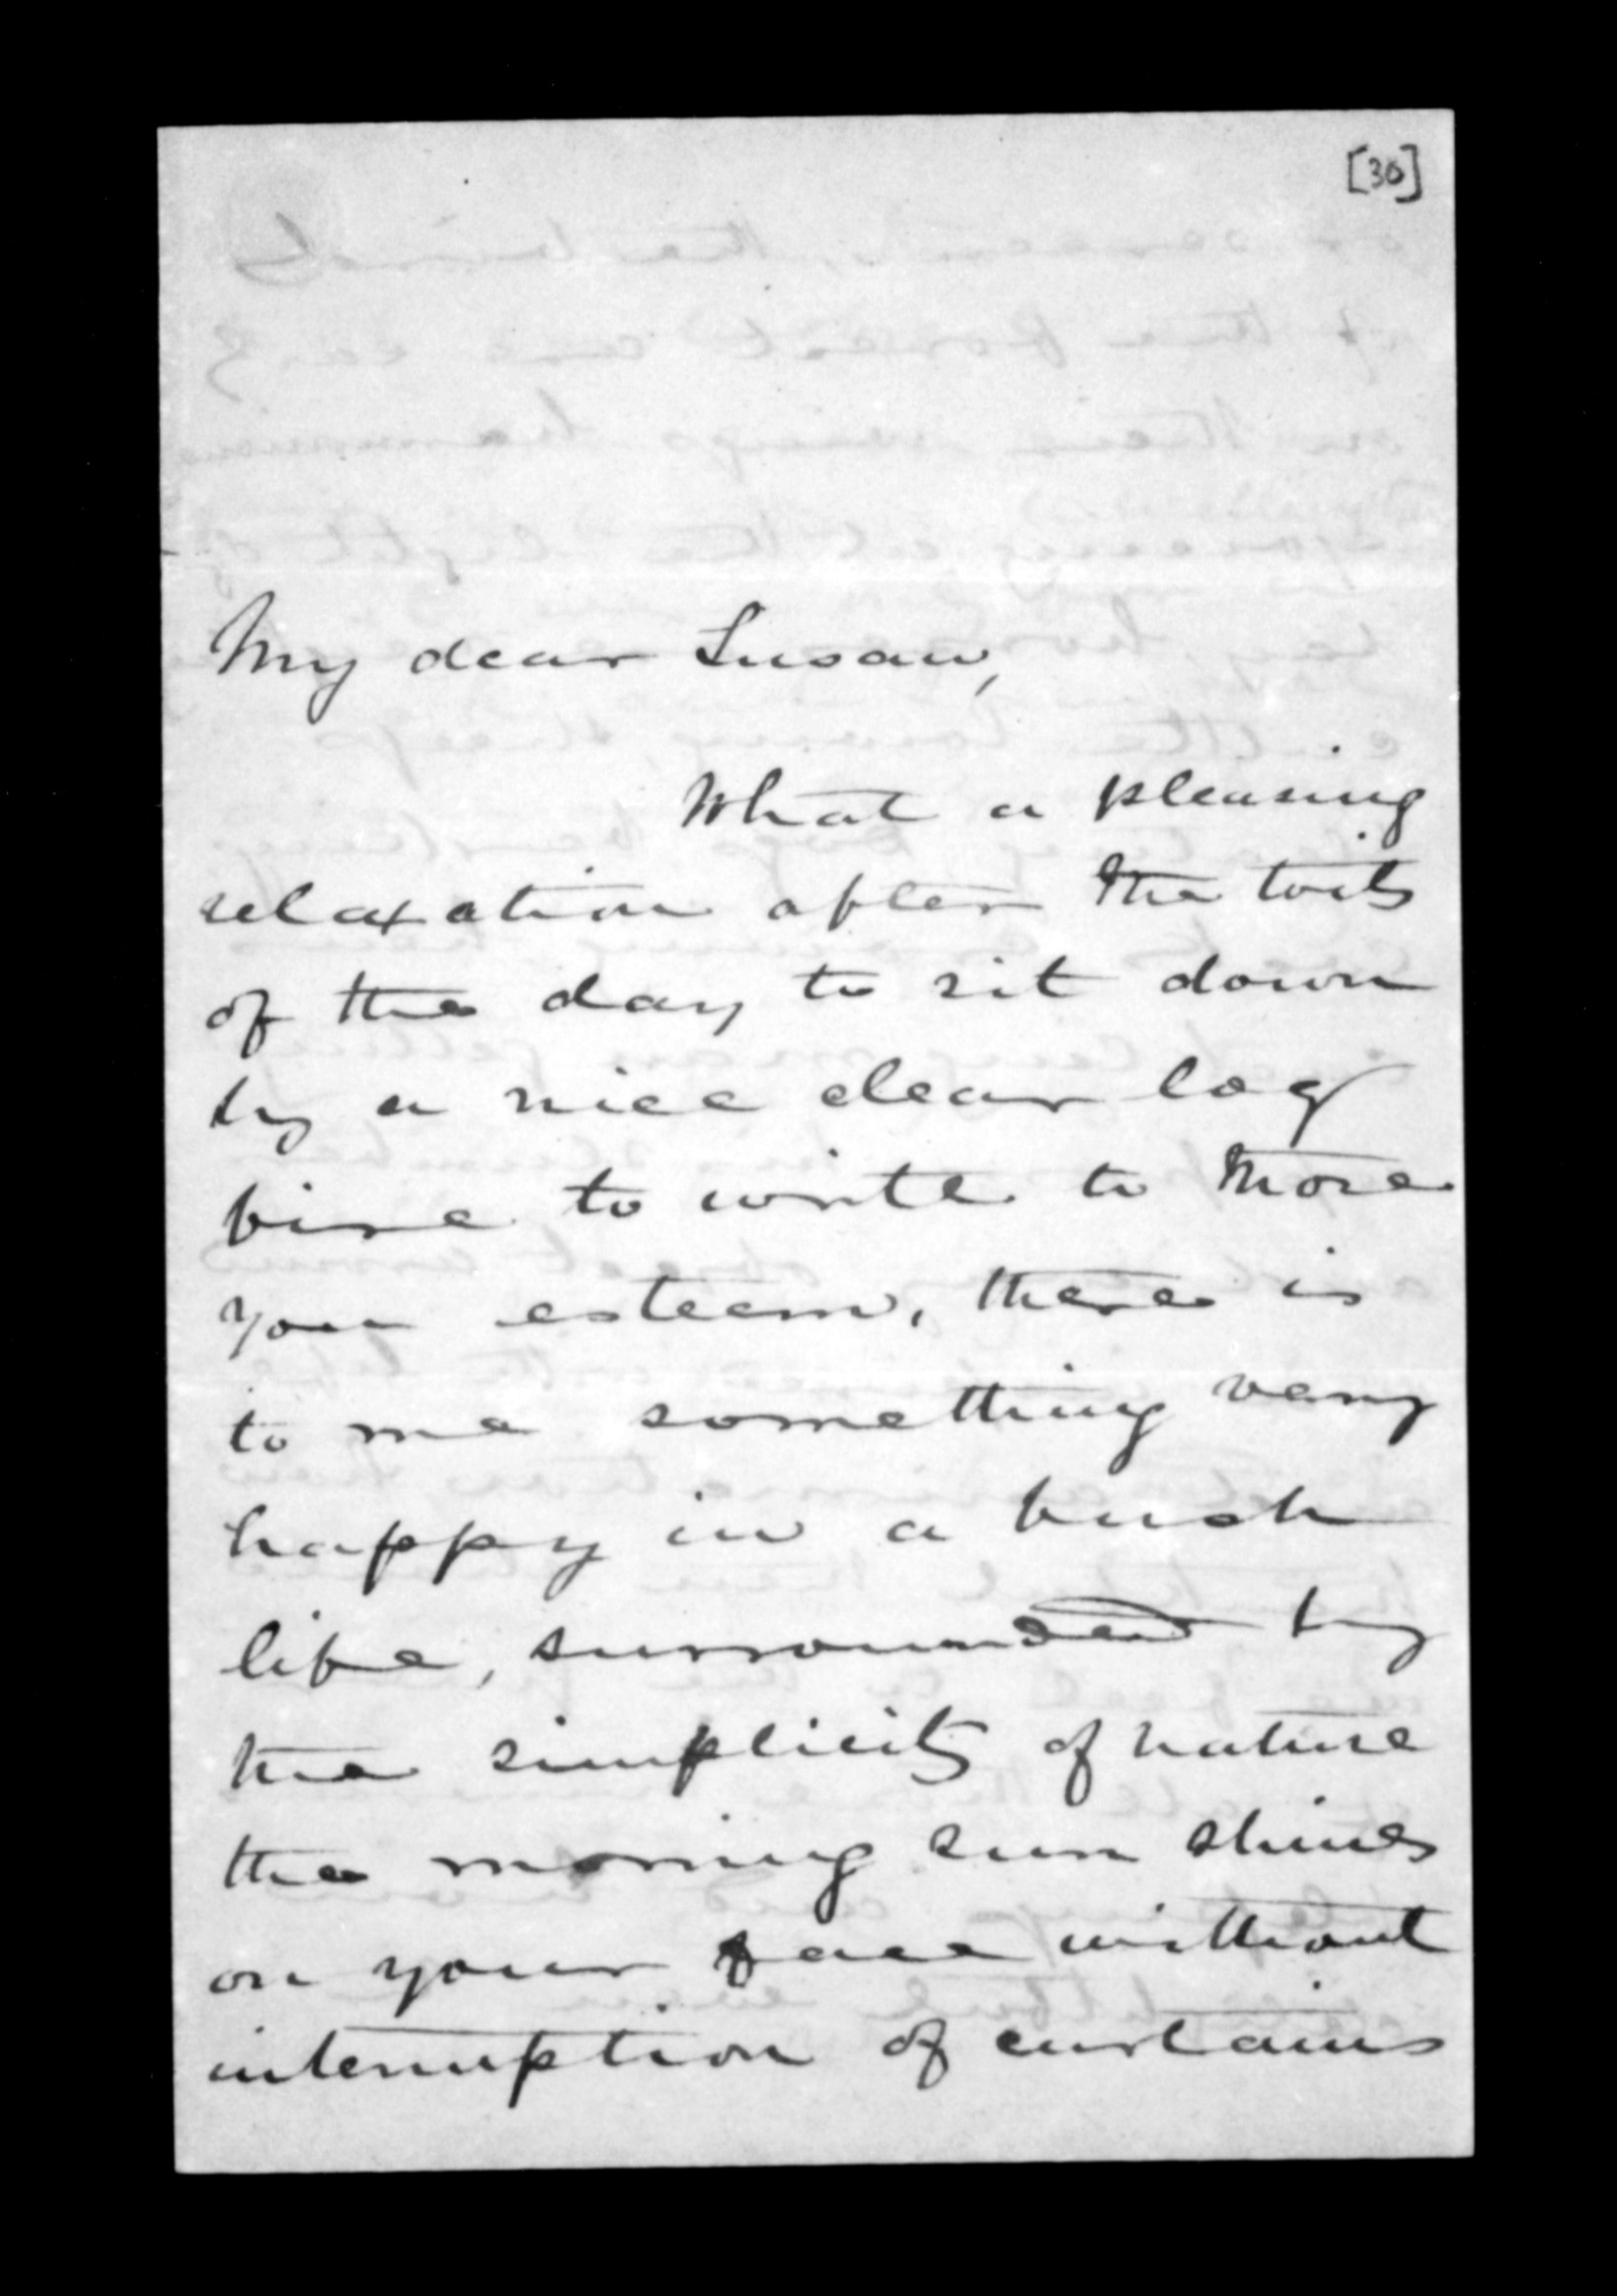 [30]
My dear Susan,
What a pleasing
relaxation after the toils
of the day to sit down
by a nice clear log
fire to write to those
you esteem, there is
to me something very
happy in a bush
life, surrounded by
the simplicity of nature
the morning sun shines
on your face without
interruption of curtains